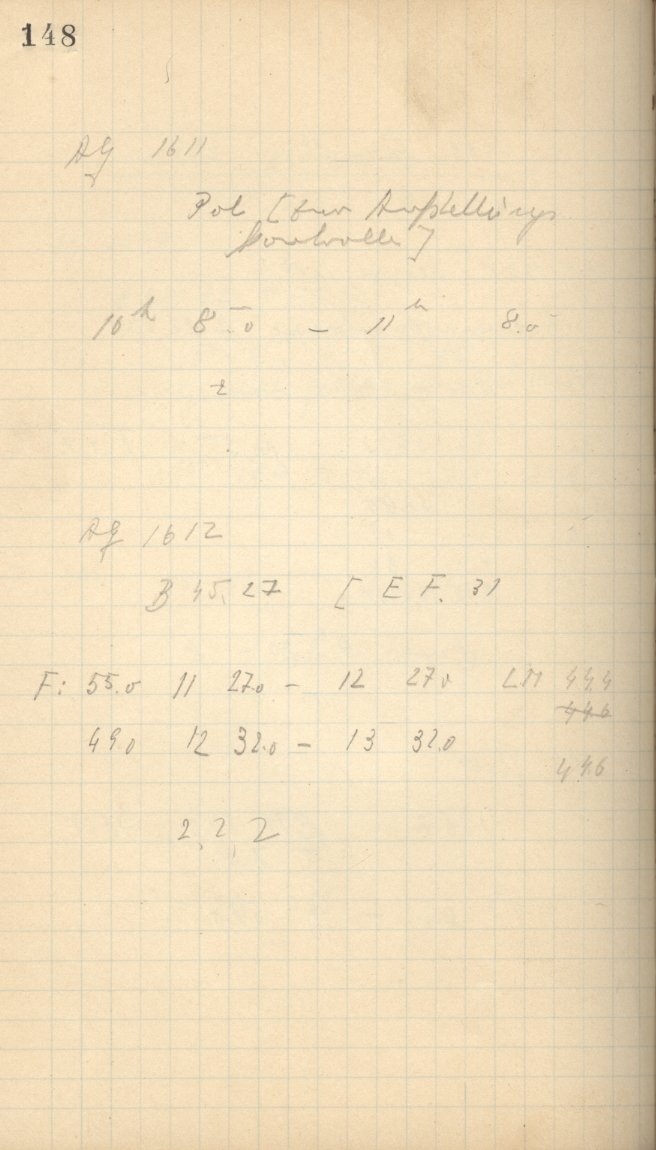 148
AG 1611
Pol [zur Aufstellungs
kontrolle]
10h 8.0 – 11h 8.0
2
AG 1612
B 45, 27 [ E F. 31
F: 55.0 11 27.0 – 12 27.0 LM 44.4
446
49.0 12 32.0 – 13 32.0
44.6
2, 2, 2